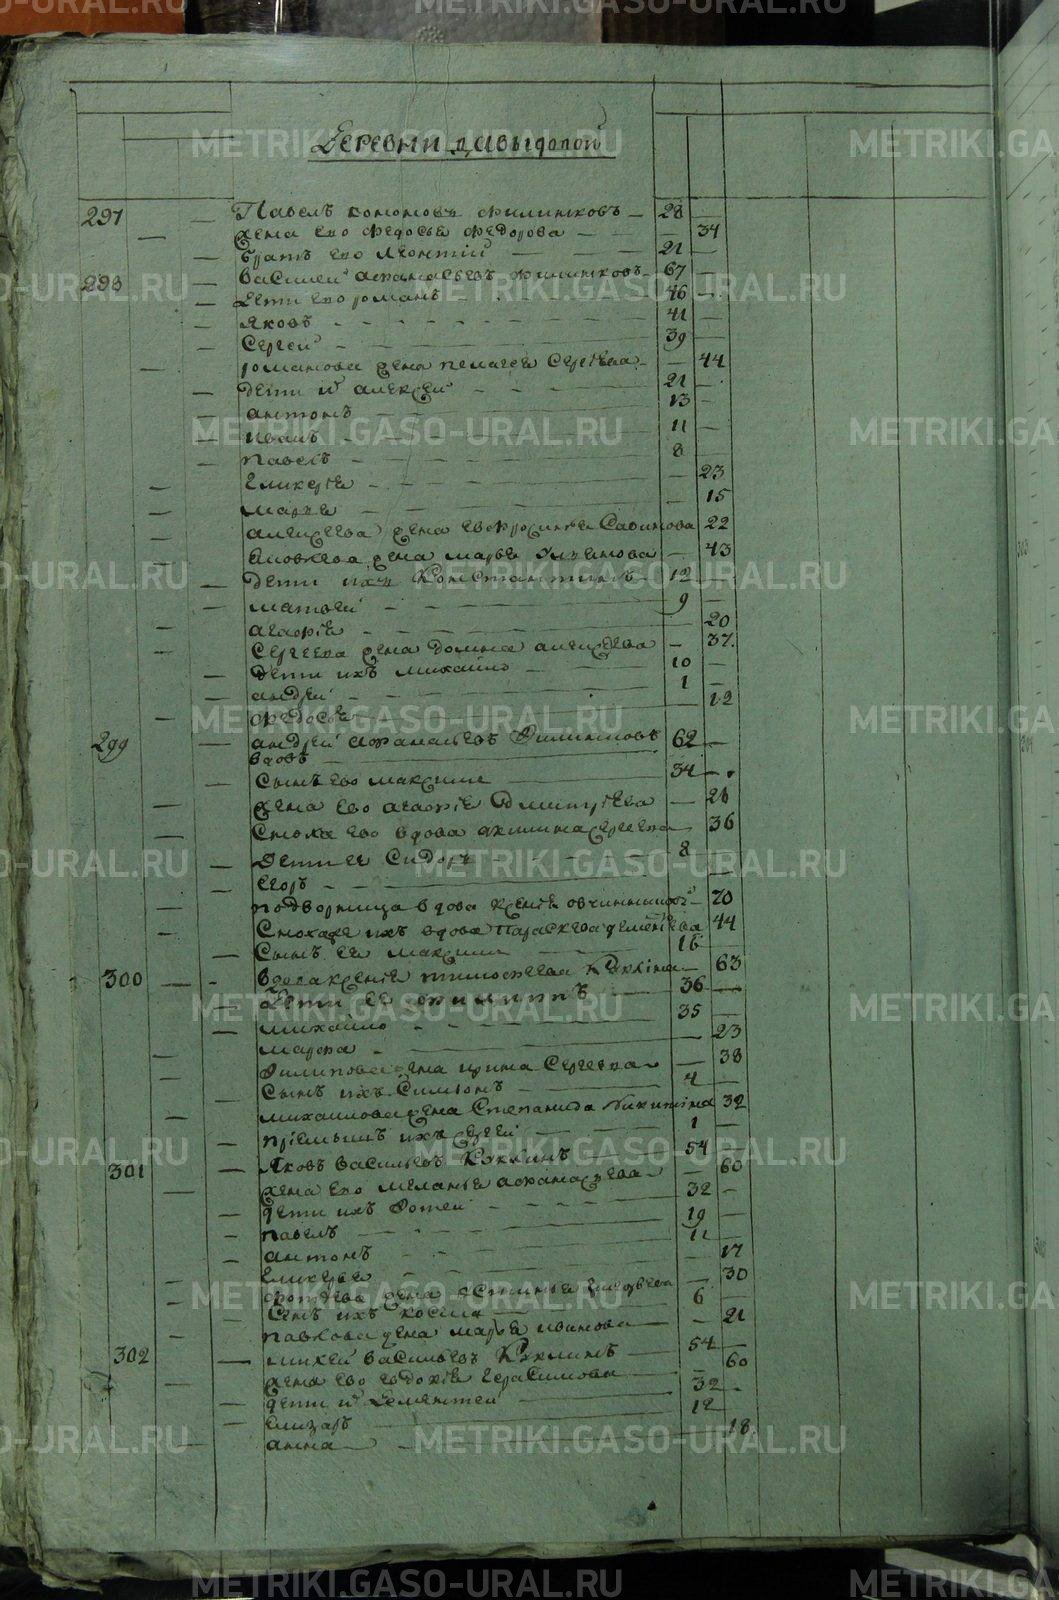 METRIKI.GASO-URAL.RU
Деревни давыдовой
291 Павелъ кононовъ Филинковъ 28
жена его Федосья Федорова 34
братъ его леонтій 21
298 василей афанасьевъ Филинковъ 67
дети его романъ 46
яковъ 41
Сергей 39
романова жена пелагея Сергѣева 44
дети ихъ алексей 21
антонъ 13
иванъ 11
павелъ 8
гликерія 23
марья 15
алексеева жена евфросинья Савинова 22
яковлева жена марья 43
дети ихъ Константинъ 12
матвей 9
агафія 20
Сергеева жена домна алексеева 37
дети ихъ михайло 10
андрей 1
федосья 12
299 андрей афанасьевъ Филинковъ 62
вдовъ
сынъ его максимъ 34
жена его агафія дмитріева 28
Сноха его вдова акилина Сергеева 36
дети ее Сидоръ 8
егоръ
подворница вдова ксенія овчинникова 70
Сноха ихъ вдова Параскева дементьева 44
Сынъ ее максимъ 16
300 вдова ксенія тимофеева Куклина 63
дети ее филиппъ 36
михайло 35
марфа 23
Филипова жена ирина Сергеева 38
Сынъ ихъ Симіонъ 4
михайлова жена Степанида Никитина 32
пріемышъ ихъ Сергей 1
301 яковъ васильевъ Куклинъ 54
жена его меланья афанасьева 60
дети ихъ Фотей 32
павелъ 19
антонъ 11
гликерья 17
фотеева жена 30
Сынъ ихъ косма 6
павлова жена марья иванова 21
302 михей васильевъ Куклинъ 54
жена его евдокія герасимова 60
дети ихъ дементей 32
елизаръ 12
анна 18